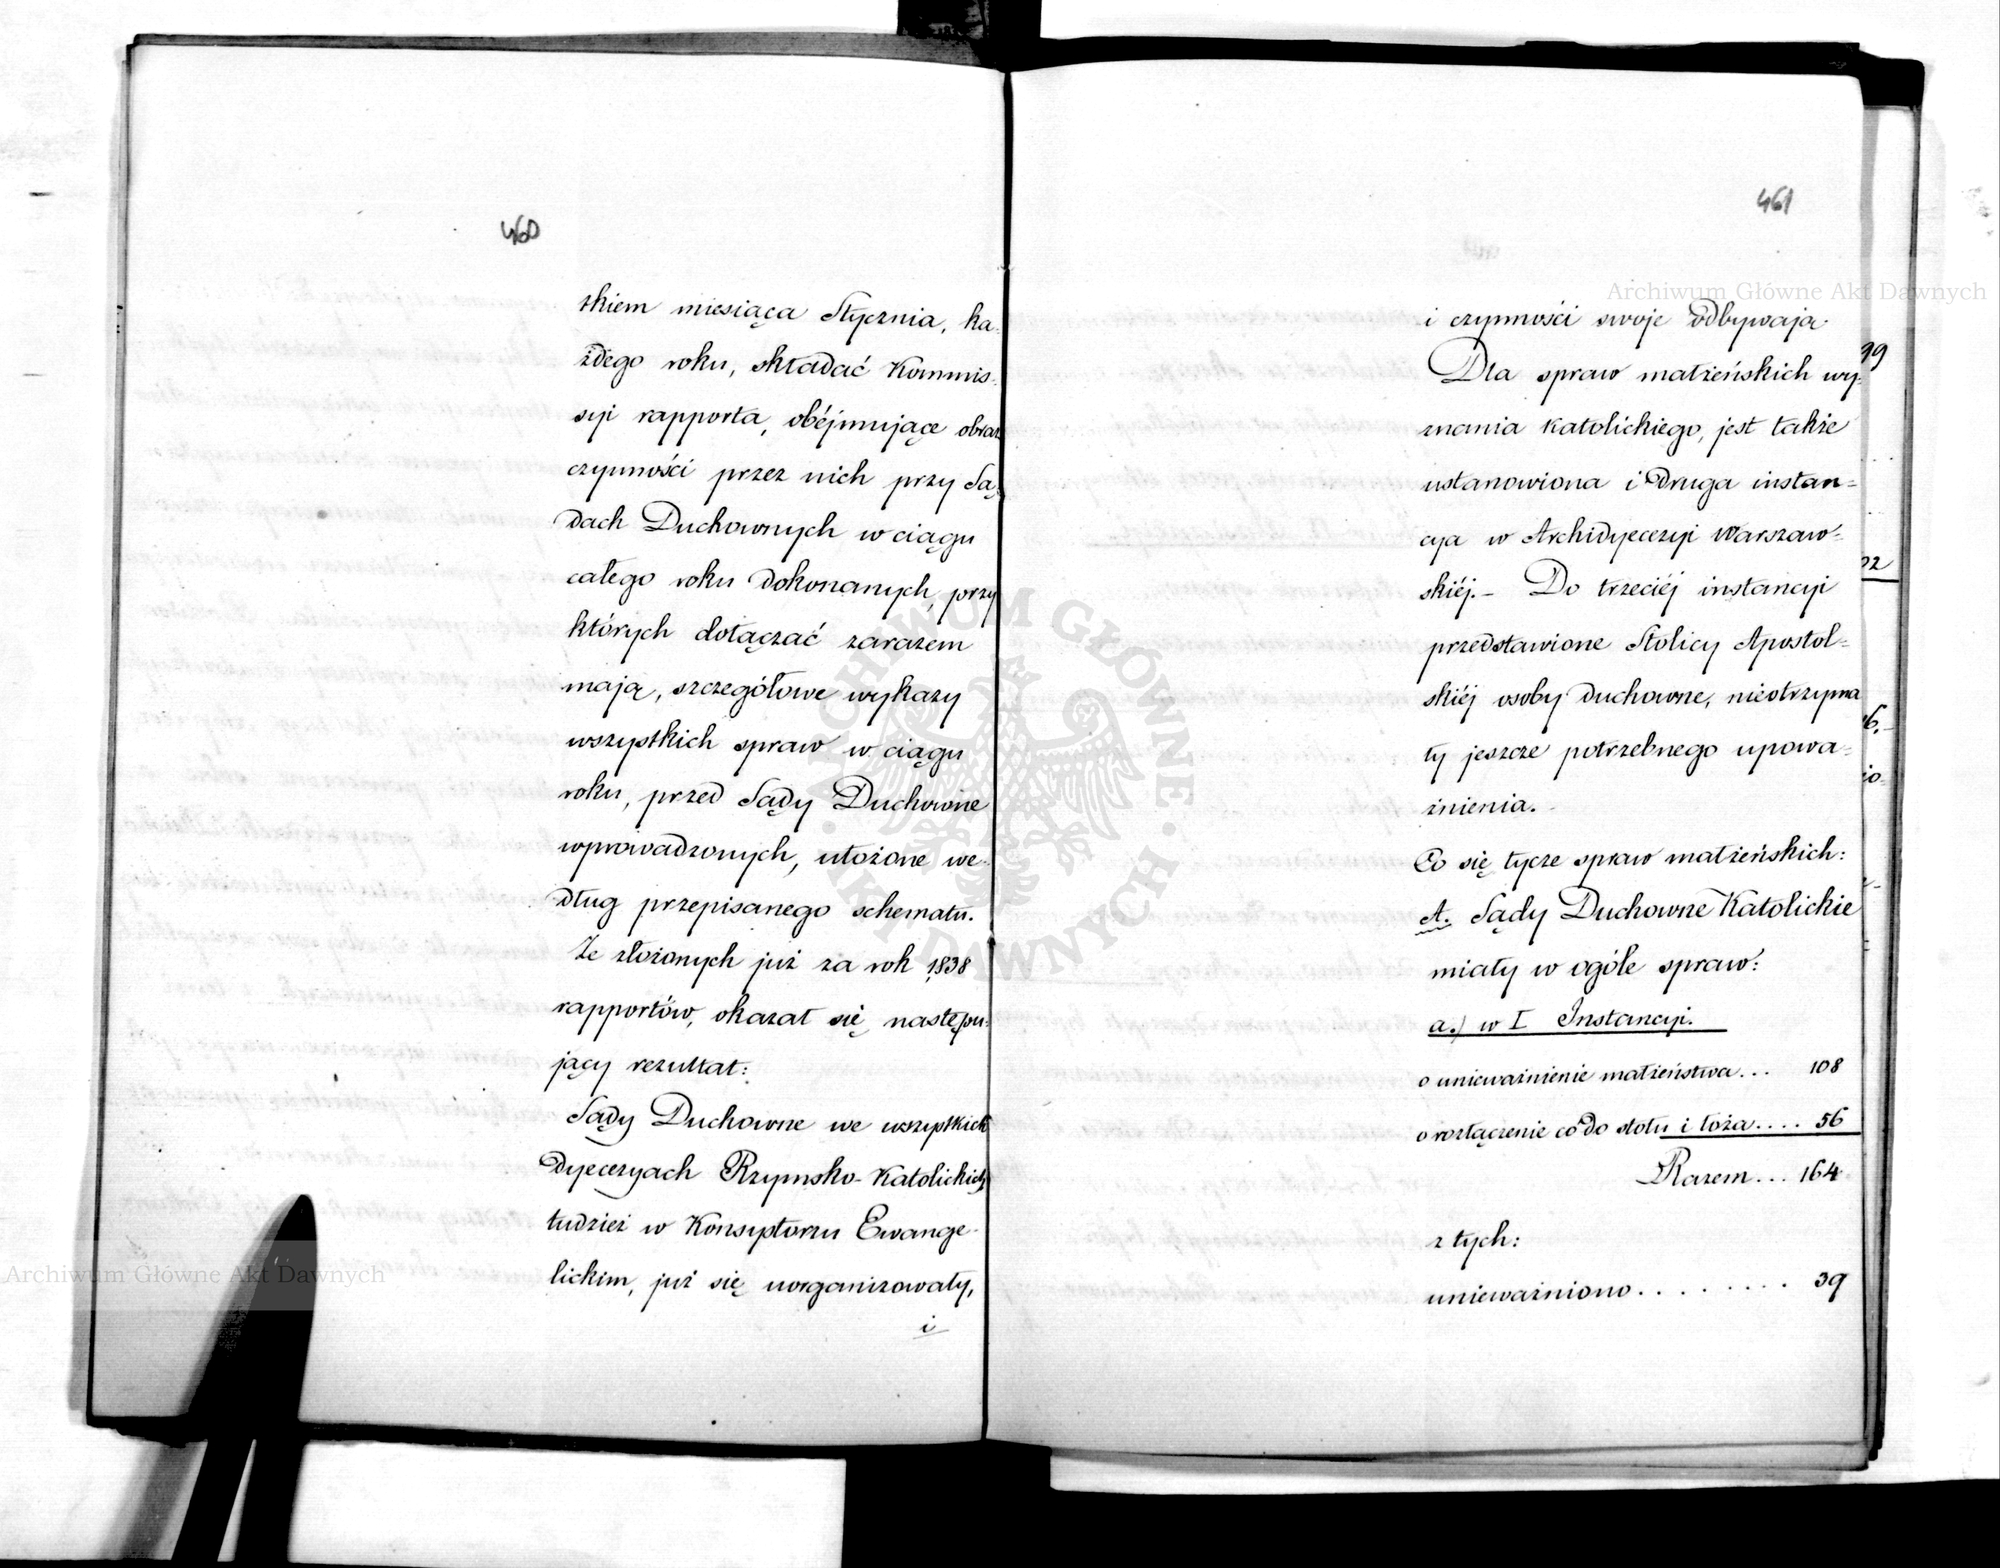 460
tkiem miesiąca Stycznia, ka-
żdego roku, składać Kommis-
syi rapporta, obéjmujące obraz
czynności przez nich przy Są-
dach Duchownych w ciągu
całego roku dokonanych, przy
których dołączać zarazem
mają, szczegółowe wykazy
wszystkich spraw w ciągu
roku, przed Sądy Duchowne
wprowadzonych, ułożone we-
dług przepisanego schematu.
Ze złożonych już za rok 1838
rapportów, okazał się następu-
jący rezultat:
Sądy Duchowne we wszystkich
dyecezyach Rzymsko-Katolickich
tudzież w Konsystorzu Ewange-
lickim, już się uorganizowały,
i
461
i czynności swoje odbywają.
Dla spraw małżeńskich wy-
znania Katolickiego, jest także
ustanowiona i druga instan=
cya w Archidyecezyi Warszaw=
skiéj.– Do trzeciéj instancyi
przedstawione Stolicy Apostol=
skiéj osoby duchowne, nieotrzyma
ły jeszcze potrzebnego upowa=
żnienia.
Co się tycze spraw małżeńskich:
A. Sądy Duchowne Katolickie
miały w ogóle spraw:
a.) w I Instancyi.
o unieważnienie małżeństwa... 108
o rozłączenie co do stołu i łoża.... 56
Razem... 164
z tych:
unieważniono......... 39
99
02
Archiwum Główne Akt Dawnych
Archiwum Główne Akt Dawnych
ARCHIWUM GŁÓWNE · AKT DAWNYCH ·